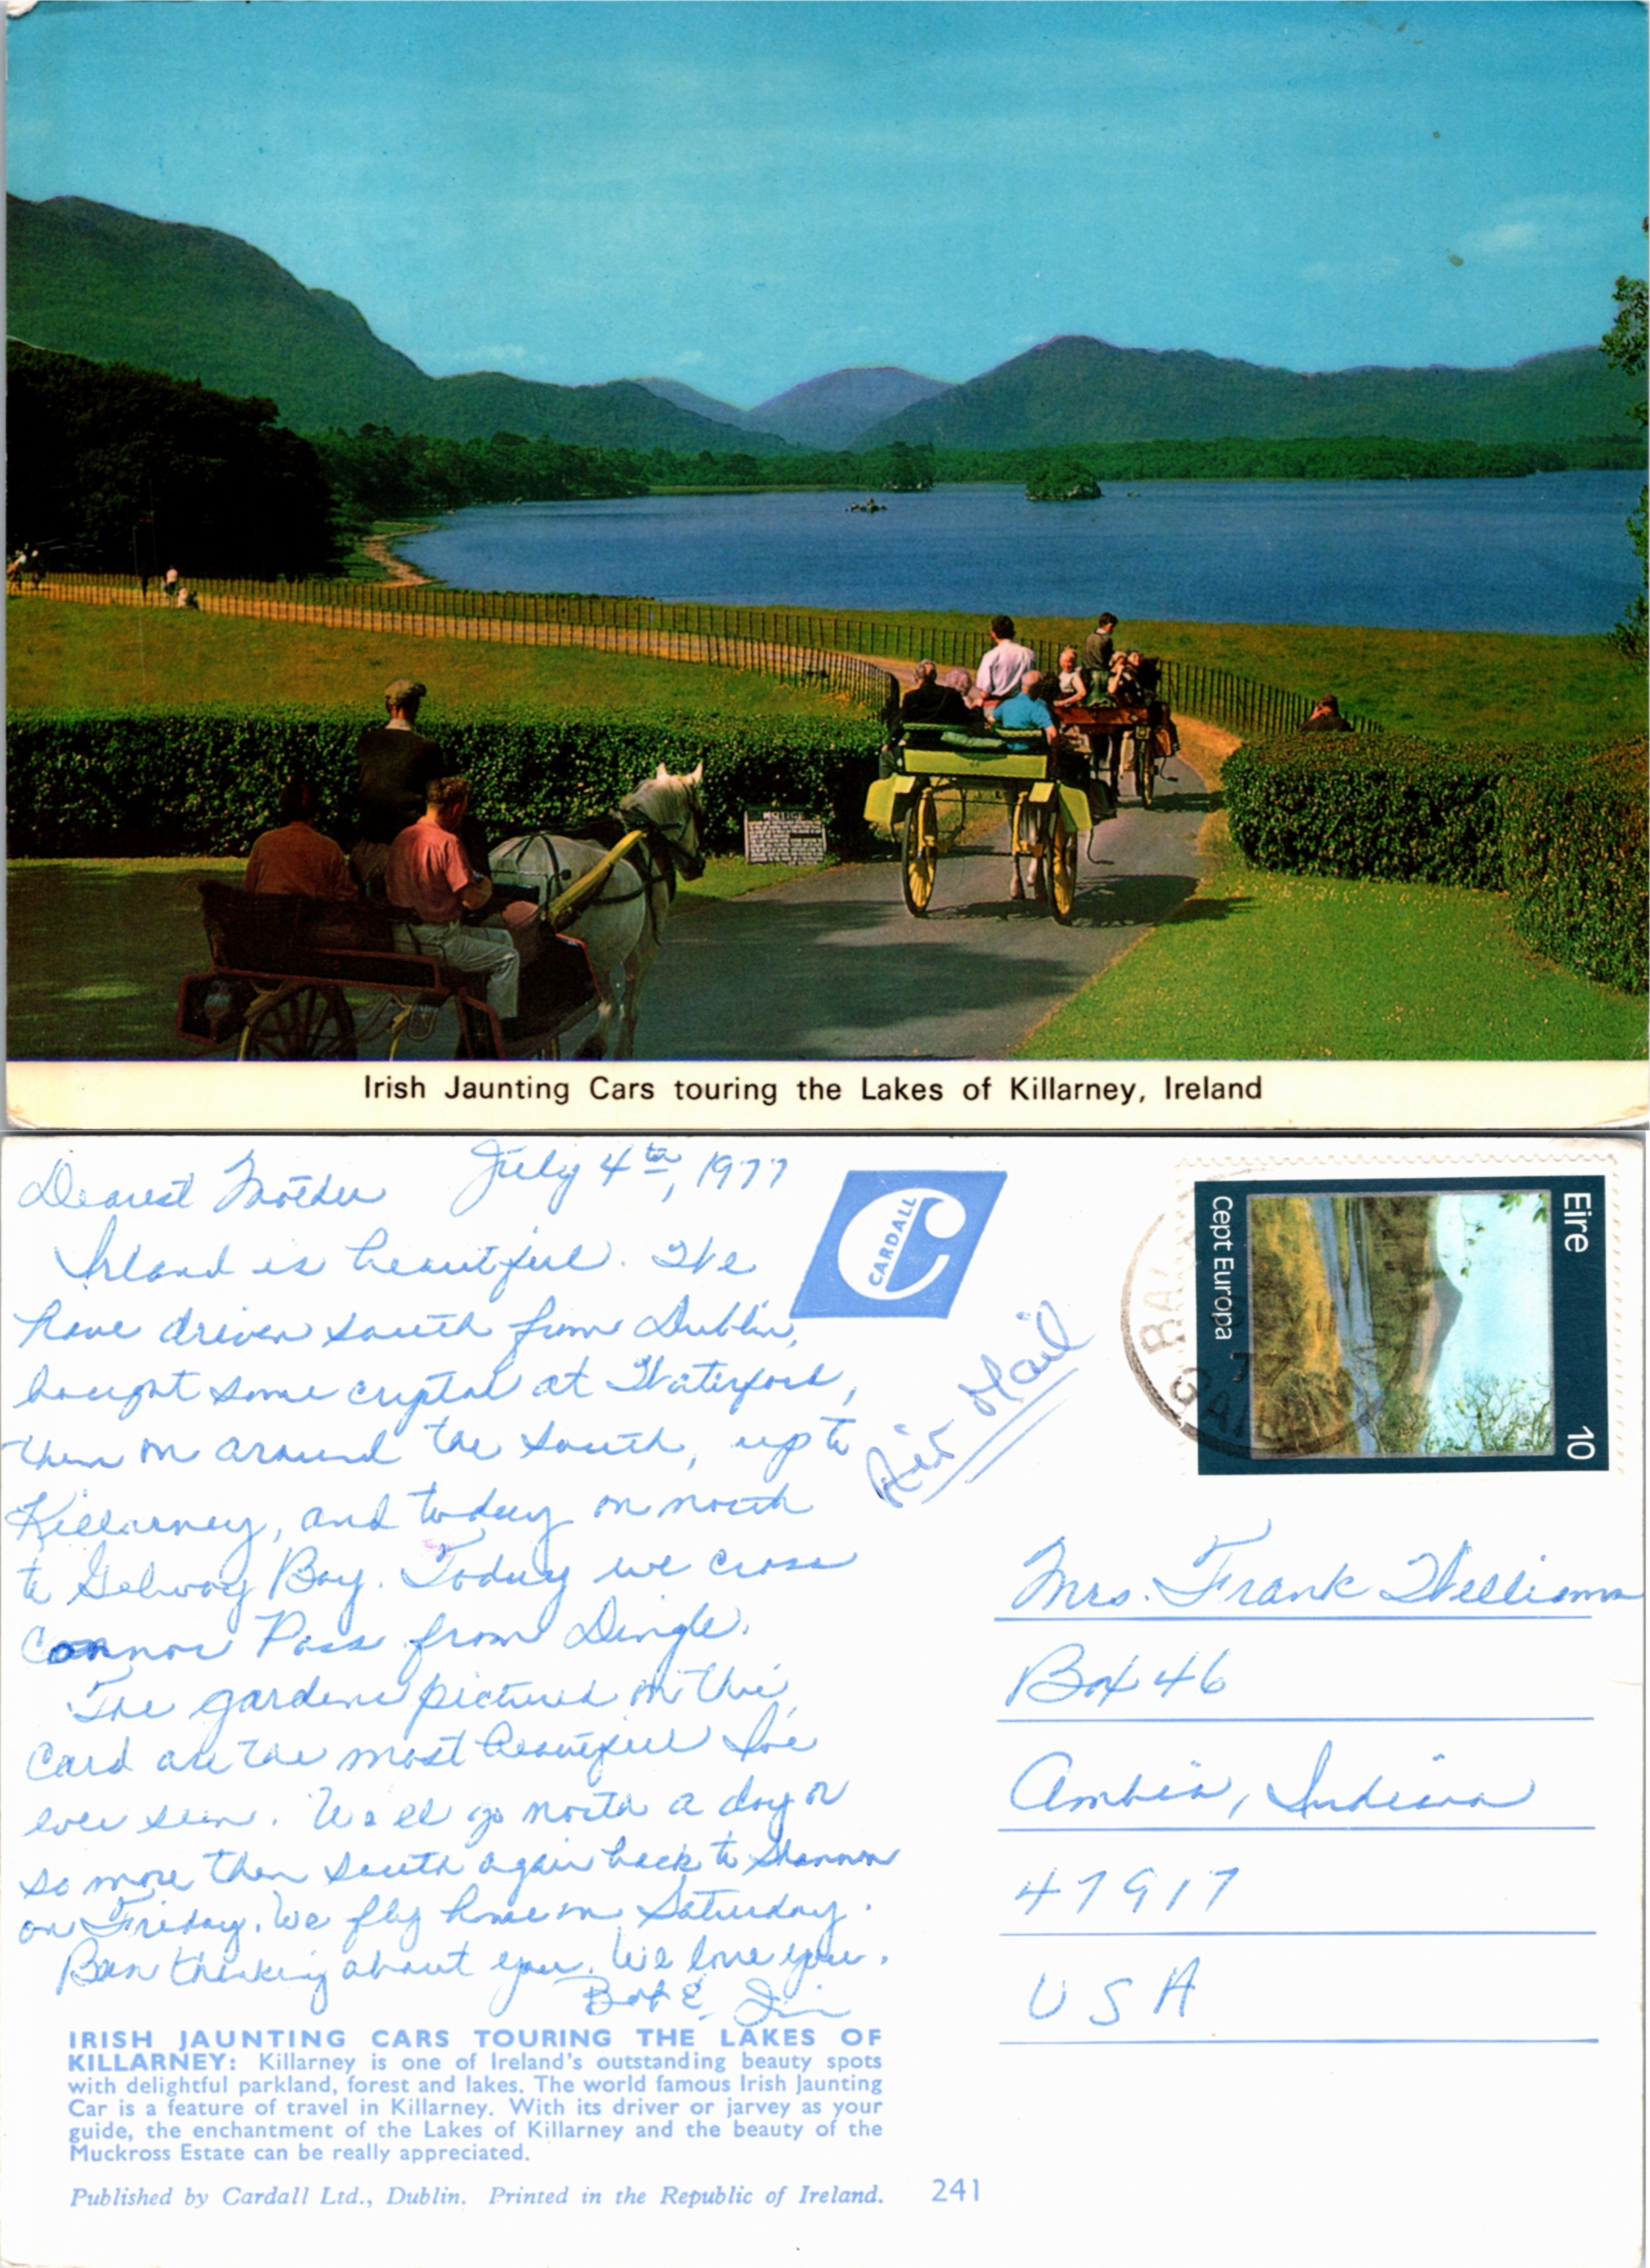 NOTICE
Irish Jaunting Cars touring the Lakes of Killarney, Ireland
Dearest Mother July 4th, 1977
Ireland is beautiful. We
have driven south from Dublin,
bought some crystal at Waterford,
then on around the south, up to
Killarney, and today on north
to Galway Bay. Today we cross
Connor Pass from Dingle.
The gardens pictured on this
card are the most beautiful I've
ever seen. We'll go north a day or
so more then south again back to Shannon
on Friday. We fly home on Saturday.
Been thinking about you. We love you.
Bob &
CARDALL
Air Mail
Eire
10
Cept Europa
77
Mrs. Frank Williams
Box 46
Ambia, Indiana
47917
USA
IRISH JAUNTING CARS TOURING THE LAKES OF
KILLARNEY: Killarney is one of Ireland's outstanding beauty spots
with delightful parkland, forest and lakes. The world famous Irish Jaunting
Car is a feature of travel in Killarney. With its driver or jarvey as your
guide, the enchantment of the Lakes of Killarney and the beauty of the
Muckross Estate can be really appreciated.
Published by Cardall Ltd., Dublin. Printed in the Republic of Ireland. 241